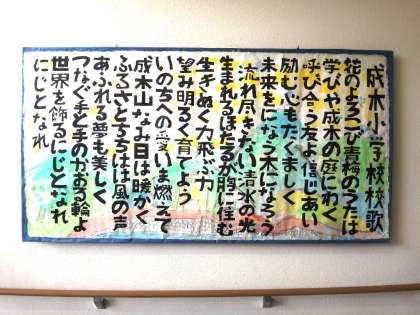 成木小学校校歌
花のよろこび青梅のうたは
学びや成木の庭にわく
呼び合う友よ信じあい
励む心もたくましく
未来をになう木になろう
流れ尽きない清水の光
生まれるほたるが胸に住む
生きぬく力飛ぶ力
望み明るく育てよう
いのちへの愛いま燃えて
成木山なみ日は暖かく
ふるさとちちはは風の声
あふれる夢も美しく
つなぐ手と手のかおる輪よ
世界を飾るにじとなれ
にじとなれ